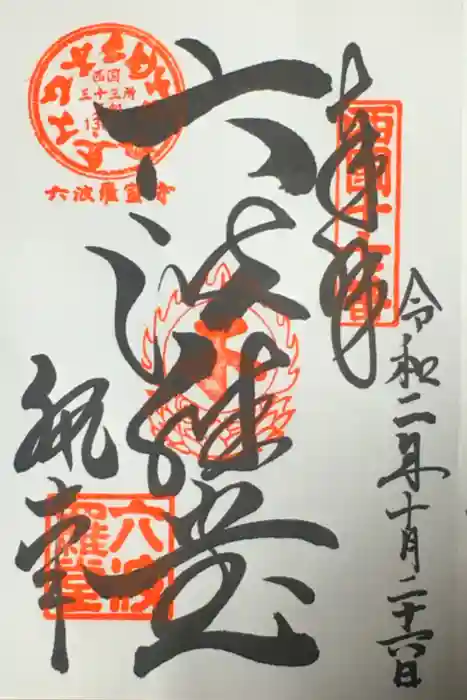 奉拝
西國十七番
令和二年十月二十六日
六波羅堂
西国
三十三所
六波羅蜜寺
執事
六波
羅堂